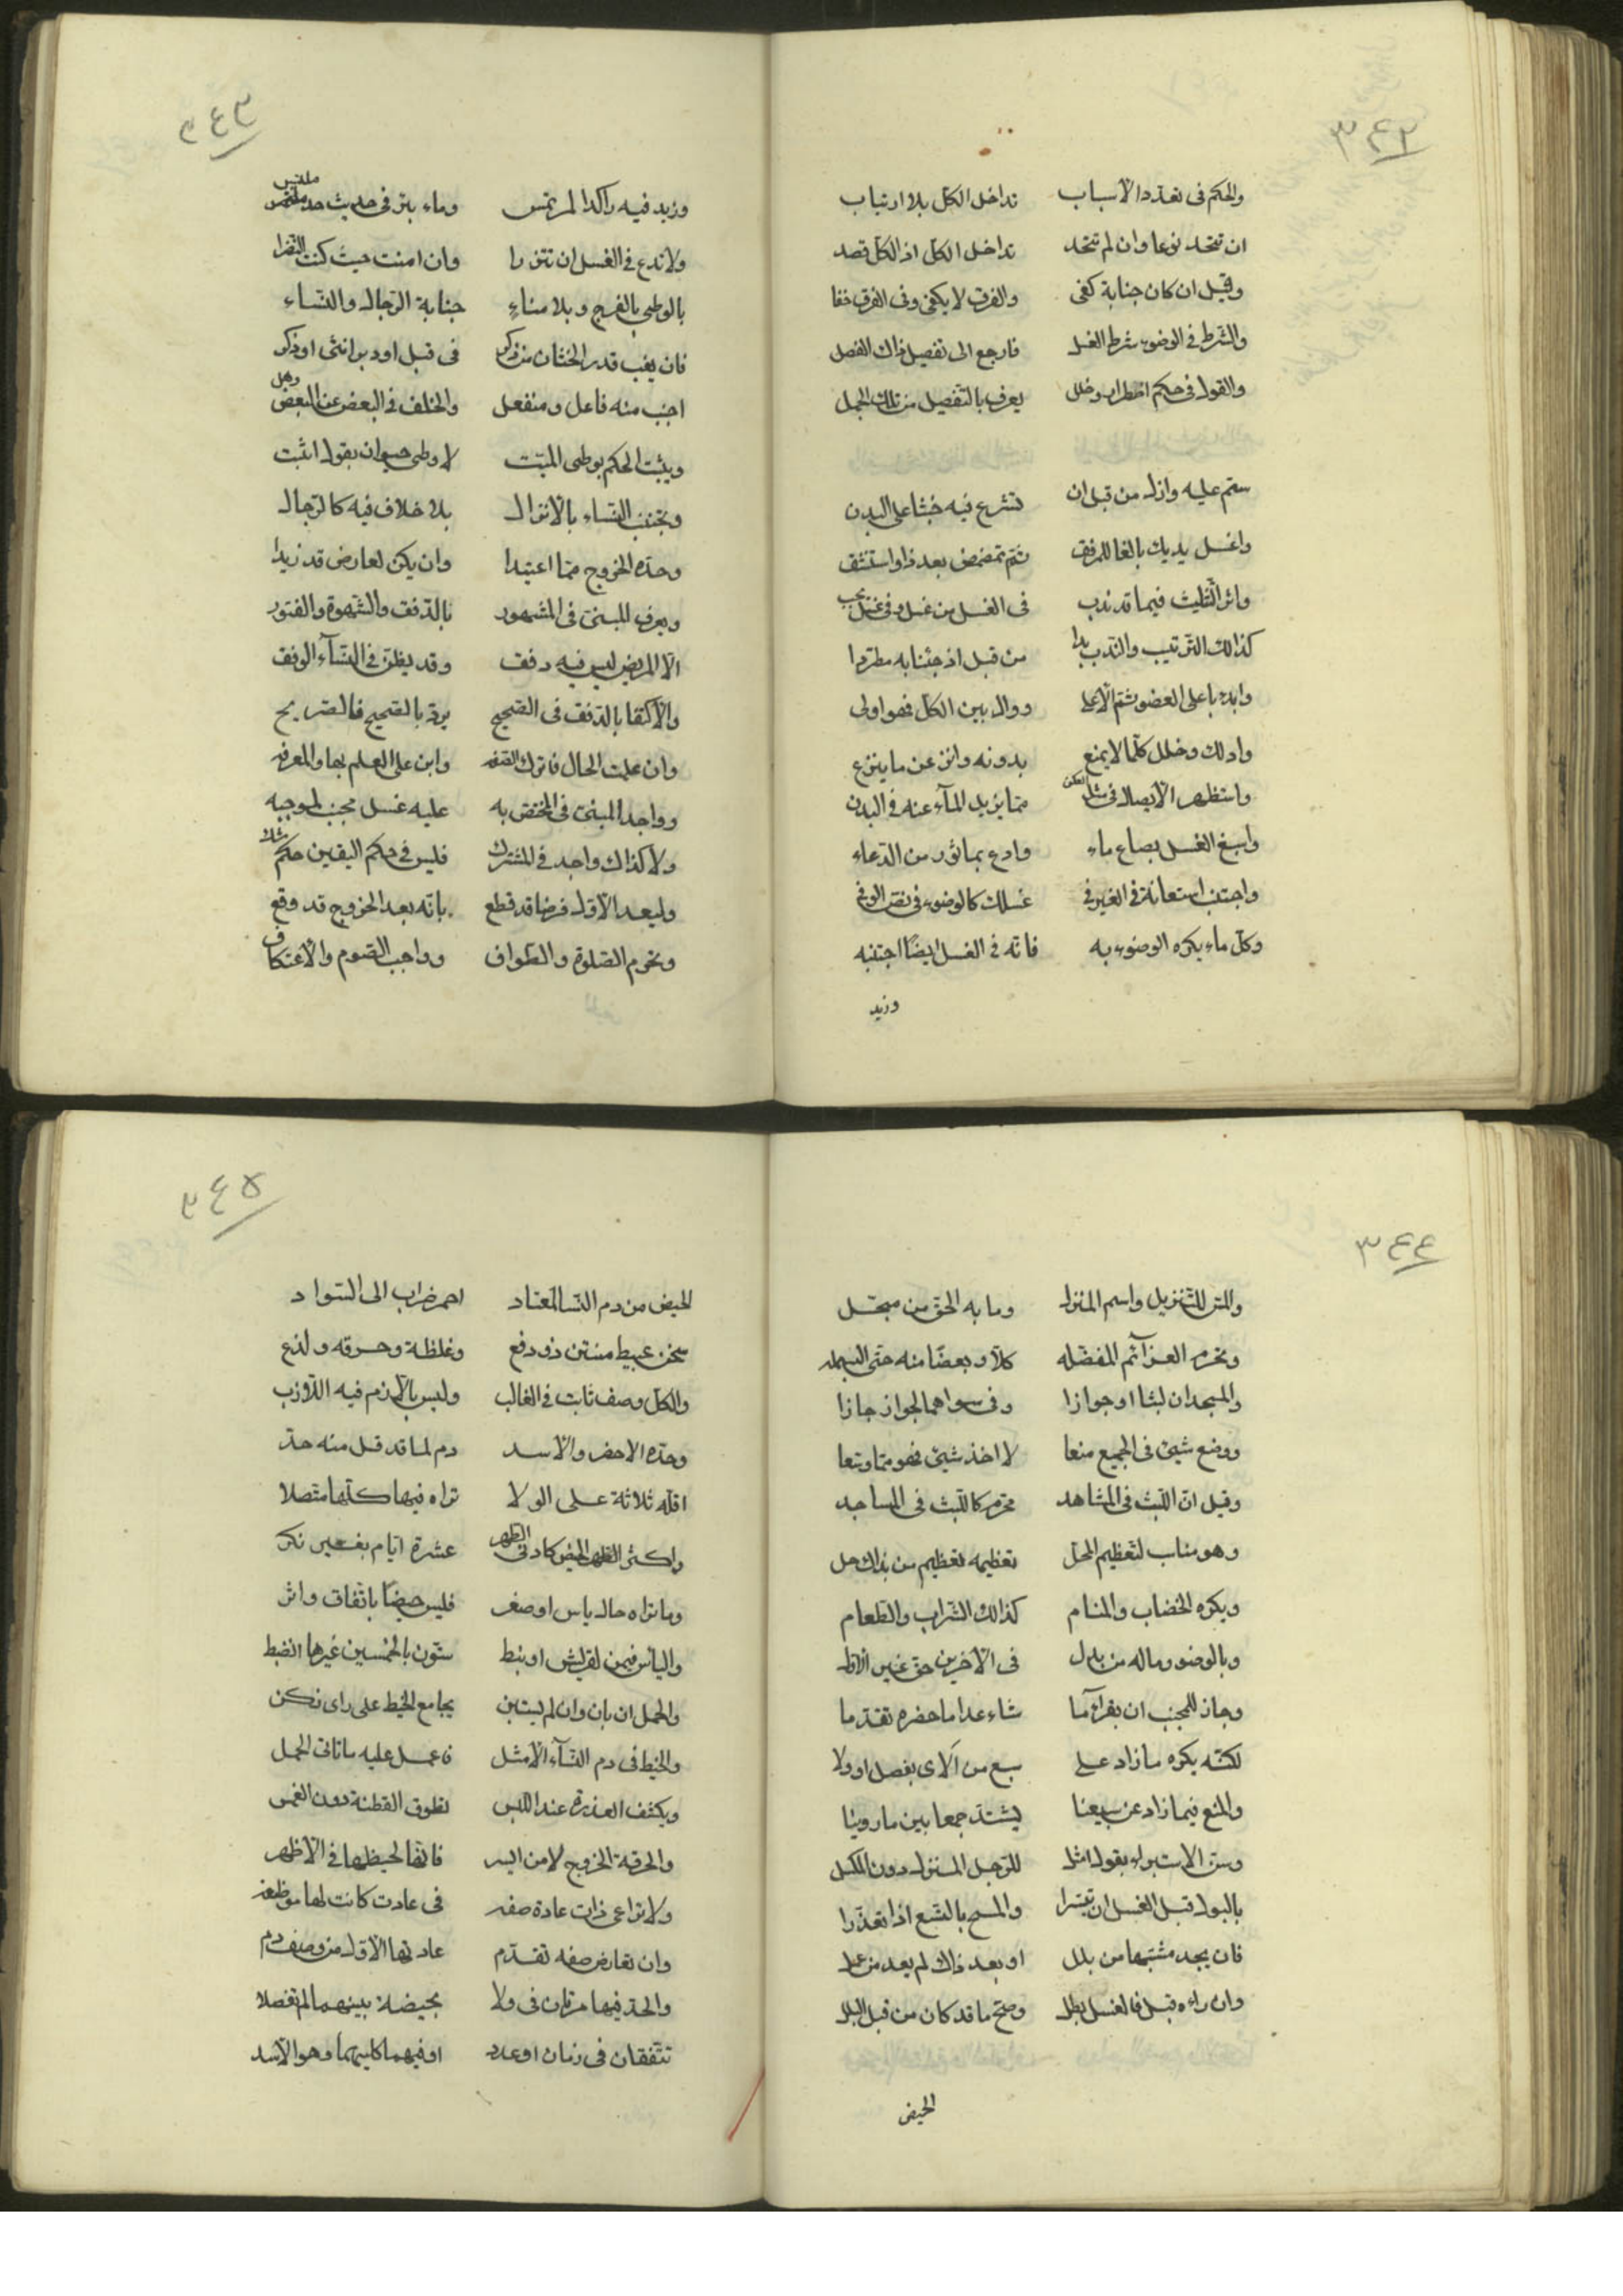 ٣٤٢
والحكم فى تعدد الاسباب تداخل الكل بلا ارتياب
ان تتحد نوعا وان لم تتحد تداخل الكل اذ الكل قصد
وقيل ان كان جنابة كفى والفرق لا يكفى وفى الفرق خفا
والشرط فى الوضوء شرط الغسل فارجع الى تفصيل ذاك الفصل
والقول فى حكم اضطرار وخلل يعرف بالتفصيل من تلك الجمل
ستم عليه وازل من قبل ان تشرع فيه خبثا على البدن
واغسل يديك بالغا للمرفق ثم تمضمض بعد ذا واستنشق
واثر التثليث فيما قد ندب فى الغسل من غسل وفى غسل يجب
كذالك الترتيب والندب بدا من قبل اذ جئنا به مطردا
وابدء باعلى العضو ثم الاعلى ووال بين الكل فهو اولى
وادلك وخلل كلما لا يمنع بدونه وانزعن ما ينزع
واستظهر الايصال فى مثل العكن مما يزيل الماء عنه فى البدن
واسبغ الغسل بصاع ماء وادع بماثور من الدعاء
واجتنب استعانة الغير فى غسلك كالوضوء فى نص الوفى
وكل ماء يكره الوضوء به فانه فى الغسل ايضا اجتنبه
وزيد
٣٤٣
وزيد فيه راكدا لم يرتمس وماء بئر فى حديث ملتبس
ولا تدع فى الغسل ان تتزرا وان امنت حيث كنت النضرا
بالوطى بالفرج وبلا مناء جنابة الرجال والنساء
فان يغب قدر الختان من ذكر فى قبل او دبر انثى او ذكر
اجنب منه فاعل ومنفعل والخلف فى البعض عن البعض وهل
ويثبت الحكم بوطى الميت لا وطى حيوان بقول اثبت
وتجنب النساء بالانزال بلا خلاف فيه كالرجال
وحده الخروج مما اعتيدا وان يكن لعارض قد زيدا
ويعرف المنى فى المشهور بالدفق والشهوة والفتور
الا المريض ليس فيه دفق وقد يظن فى النساء الوفق
والاكتفا بالدفق فى الصحيح يرد بالصحيح فالصريح
وان علمت الحال فاترك الصفه وابن على العلم بها والمعرفه
وواجد المنى فى المختص به عليه غسل مجنب لموجبه
ولا كذاك واجد فى المشترك فليس فى حكم اليقين حكم شك
وليعد الاول فرضا قد قطع بانه بعد الخروج قد وقع
وتحرم الصلوة والطواف وواجب الصوم والاعتكاف
٣٤٤
والمس للتنزيل واسم المنزل وما به الحق من مبجل
وتحرم العزائم المفضله كلا وبعضا منه حتى البسمله
والمسجدان لبثا او جوازا وفى سواهما الجواز جازا
ووضع شيئ فى الجميع منعا لا اخذ شيئ فهو مما وسعا
وقيل ان اللبث فى المشاهد محرم كاللبث فى المساجد
وهو مناب لتعظيم المحل تعظيمه تعظيم من بذاك حل
ويكره الخضاب والمنام كذالك الشراب والطعام
وبالوضوء وماله من بدل فى الاخرين حق غير الاول
وجاز للمجنب ان يقرأ ما شاء عدا ما حضره تقدما
لكنه يكره ما زاد على سبع من الاى بفصل او ولا
والمنع فيما زاد عن سبعينا يشتد جمعا بين ما روينا
وسن الاستبراء بقول امثل للرجل المنزل دون المكسل
بالبول قبل الغسل ان تيسرا والمسح بالتسع اذا تعذرا
فان يجد مشتبها من بلل او بعد ذاك لم يعد من عمل
وان راءه قبل فالغسل بطل وصح ما قد كان من قبل البلل
الحيض
٣٤٥
الحيض من دم النسا المعتاد احمر ضراب الى السواد
سخن عبيط منتن ذو دفع وغلظة وحرقه ولذع
والكل وصف ثابت فى الغالب وليس باللازم فيه اللازب
وحده الاحضر والاسد دم لما قد قل منه حد
اقله ثلاثة على الولا تراه فيها كلها متصلا
واكثر الحيض كادنى الطهر عشرة ايام بغير نكر
وما تراه حال ياس او صغر فليس حيضا باتفاق واثر
والياس فيمن لقريش او نبط ستون بالخمسين غيرها انضبط
والحمل ان بان وان لم يستبن يجامع الحيض على راى زكن
والحيض فى دم النساء الامثل فاعمل عليه ما تاتى الحمل
ويكشف العذرة عند اللبس تطوق القطنة دون الغمس
والحرقة الخروج لا من اليسر فانها لحيضها فى الاظهر
ولا تراعى ذات عادة صفه فى عادت كانت لها موظفه
وان تعارض صفه تقدم عادتها الاول من وصف دم
والحد فيها مرتان فى ولا بحيضة بينهما لم تفصلا
تتفقان فى زمان او عدد او فيهما كليهما وهو الاسد